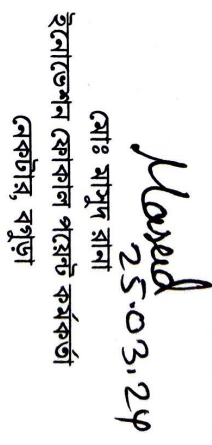 Masud
25.03.24
মোঃ মাসুদ রানা
ইনোভেশন ফোকাল পয়েন্ট কর্মকর্তা
নেকটার, বগুড়া